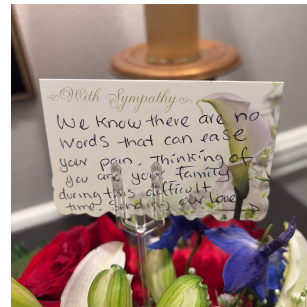 With Sympathy
We know there are no
words that can ease
your pain. Thinking of
you are your family
during this difficult
time, sending our love